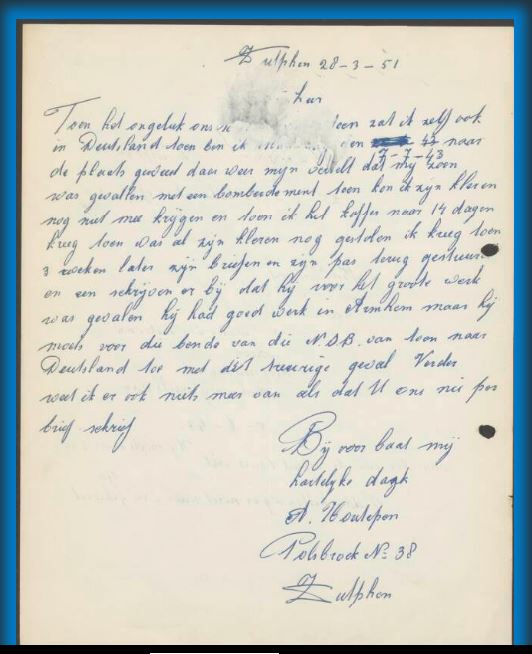 Zutphen 28-3-51
heer
Toen het ongeluk ons toen zat ik zelf ook
in Deutsland toen ben ik den 43 naar
7-7-43
de plaats geweest daar weer mijn verteld dat mij zoon
was gevallen met een bomberdement toen kon ik zijn kleren
nog niet mee krijgen en toen ik het koffer naar 14 dagen
kreeg toen was al zijn kleren nog gestolen ik kreeg toen
3 weken later zijn briefen en zijn pas terug gestuurd
en een schrijven er bij dat hij voor het groote werk
was gevalen hij had goed werk in Arnhem maar hij
moest voor die bende van die N.S.B. van toen naar
Deutsland toe met dit treurige geval Verder
weet ik er ook niets meer van als dat U ons nie per
brief schrief
Bij voor baat mij
hartelijke dank
A. Houtepen
Polsbroek No 38
Zutphen